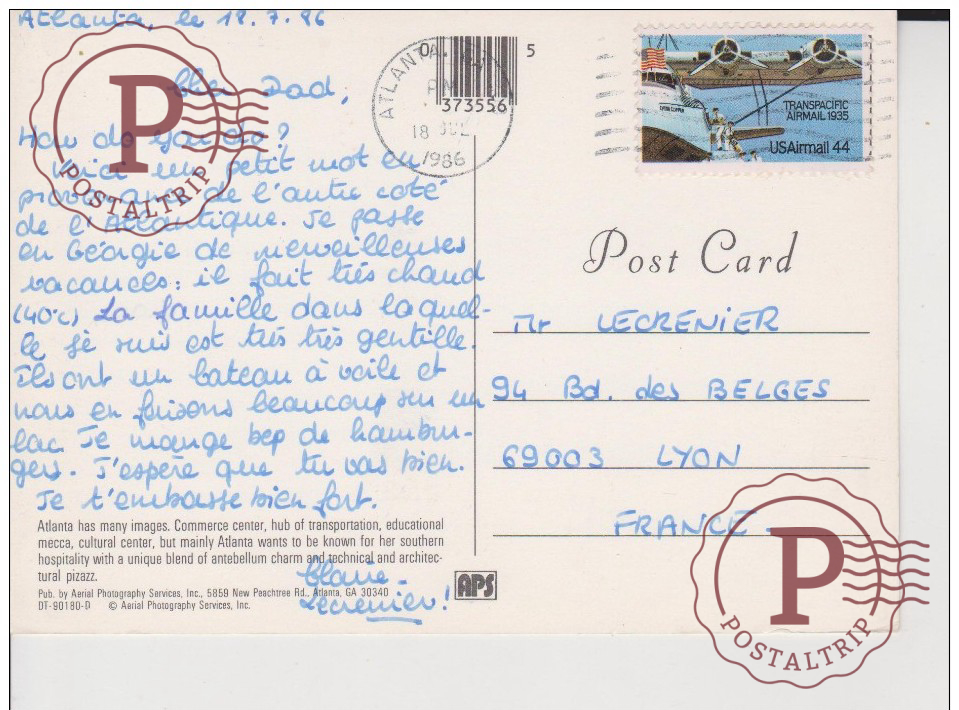 Atlanta, le 18.7.86
Dad,
How do you do?
Voici un petit mot en
provenance de l'autre coté
de l'Atlantique. Je passe
en Géorgie de merveilleuses
vacances: il fait très chaud
(40°c) La famille dans laquel-
le je suis est très très gentille.
Ils ont un bateau à voile et
nous en faisons beaucoup sur un
lac. Je mange bep de hambur-
gers. J'espère que tu vas bien.
Je t'embrasse bien fort.
Claire-
Lecrenier!
Atlanta has many images. Commerce center, hub of transportation, educational
mecca, cultural center, but mainly Atlanta wants to be known for her southern
hospitality with a unique blend of antebellum charm and technical and architec-
tural pizazz.
Pub. by Aerial Photography Services, Inc., 5859 New Peachtree Rd., Atlanta, GA 30340
DT-90180-D © Aerial Photography Services, Inc.
APS
0 5
373556
ATLANTA
PM
18 JUL
1986
TRANSPACIFIC
AIRMAIL 1935
USAirmail 44
Post Card
Mr LECRENIER
94 Bd. des BELGES
69003 LYON
FRANCE-
P
POSTALTRIP
P
POSTALTRIP